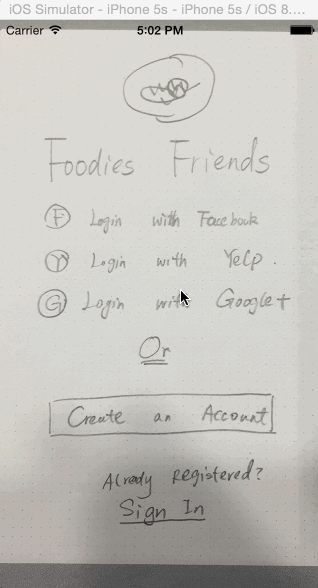 iOS Simulator - iPhone 5s - iPhone 5s / iOS 8....
Carrier 5:02 PM
Foodies Friends
F Login with Facebook
Y Login with Yelp.
G Login with Google+
Or
Create an Account
Already registered?
Sign In